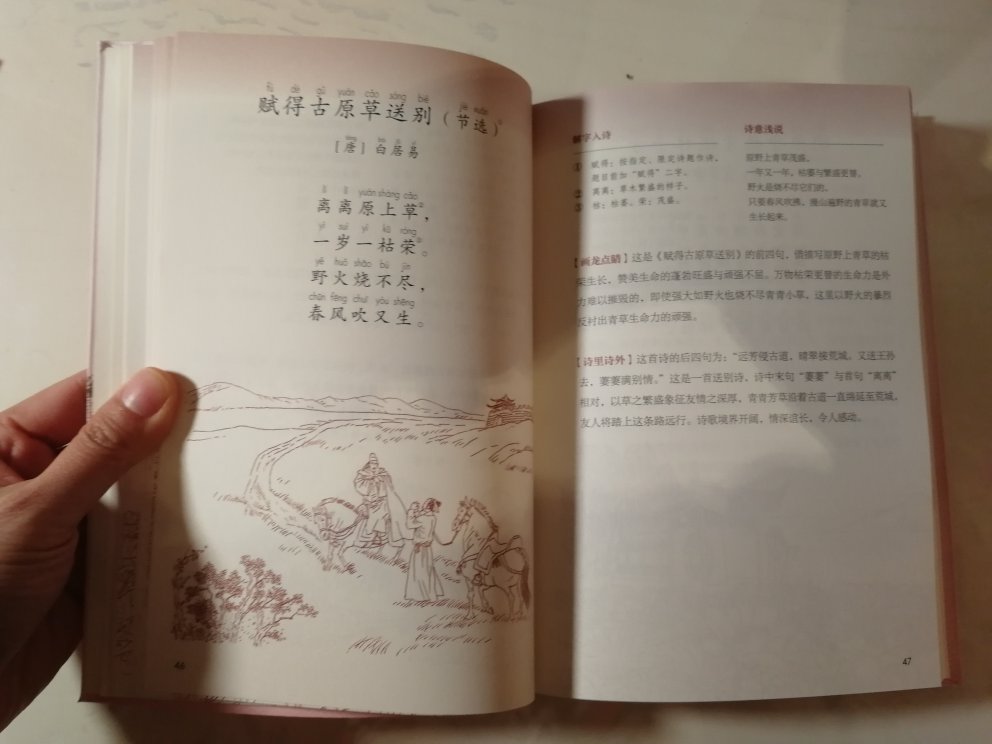 fù dé gǔ yuán cǎo sòng bié jié xuǎn
赋得古原草送别（节选）①
[唐] 白居易
lí lí yuán shàng cǎo
离离原上草②，
yí suì yì kū róng
一岁一枯荣③。
yě huǒ shāo bú jìn
野火烧不尽，
chūn fēng chuī yòu shēng
春风吹又生。
46
解字入诗
① 赋得：按指定、限定诗题作诗，
题目前加“赋得”二字。
② 离离：草木繁盛的样子。
③ 枯：枯萎。荣：茂盛。
诗意浅说
原野上青草茂盛，
一年又一年，枯萎与繁盛更替。
野火是烧不尽它们的，
只要春风吹拂，漫山遍野的青草就又
生长起来。
【画龙点睛】这是《赋得古原草送别》的前四句，借描写原野上青草的枯
荣生长，赞美生命的蓬勃旺盛与顽强不屈。万物枯荣更替的生命力是外
力难以摧毁的，即使强大如野火也烧不尽青青小草，这里以野火的暴烈
反衬出青草生命力的顽强。
【诗里诗外】这首诗的后四句为：“远芳侵古道，晴翠接荒城。又送王孙
去，萋萋满别情。”这是一首送别诗，诗中末句“萋萋”与首句“离离”
相对，以草之繁盛象征友情之深厚，青青芳草沿着古道一直绵延至荒城，
友人将踏上这条路远行。诗歌境界开阔，情深谊长，令人感动。
47